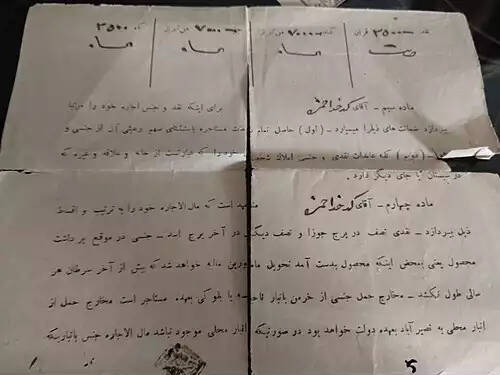 نقد ۳۵۰۰۰ قران
ماده سیم - آقای کدخدا حسن برای اینکه نقد و جنس اجاره خود را مرتباً
بپردازد ضمانت های ذیل را میسپارد - (اول) حاصل تمام مستاجره باستثنای سهم رعیتی آن از جنسی و
(دوم) کلیه عایدات نقدی و جنسی املاک خود را که عبارتست از خانه و علاقه و غیره که
در سیستان یا جای دیگر دارد
ماده چهارم - آقای کدخدا حسن متعهد است که مال الاجاره خود را به ترتیب و اقساط
ذیل بپردازد - نقدی نصف در برج جوزا و نصف دیگر در آخر برج اسد - جنسی در موقع برداشت
محصول یعنی بمحض اینکه محصول بدست آمد تحویل مامورین مالیه خواهد شد که بیش از آخر سرطان هر
سالی طول نکشد - مخارج حمل جنسی از خرمن بانبار یا بلوکی بعهده مستاجر است مخارج حمل از
انبار محلی به نصیر آباد بعهده دولت خواهد بود در صورتیکه انبار محلی موجود نباشد مال الاجاره جنس بانباریکه